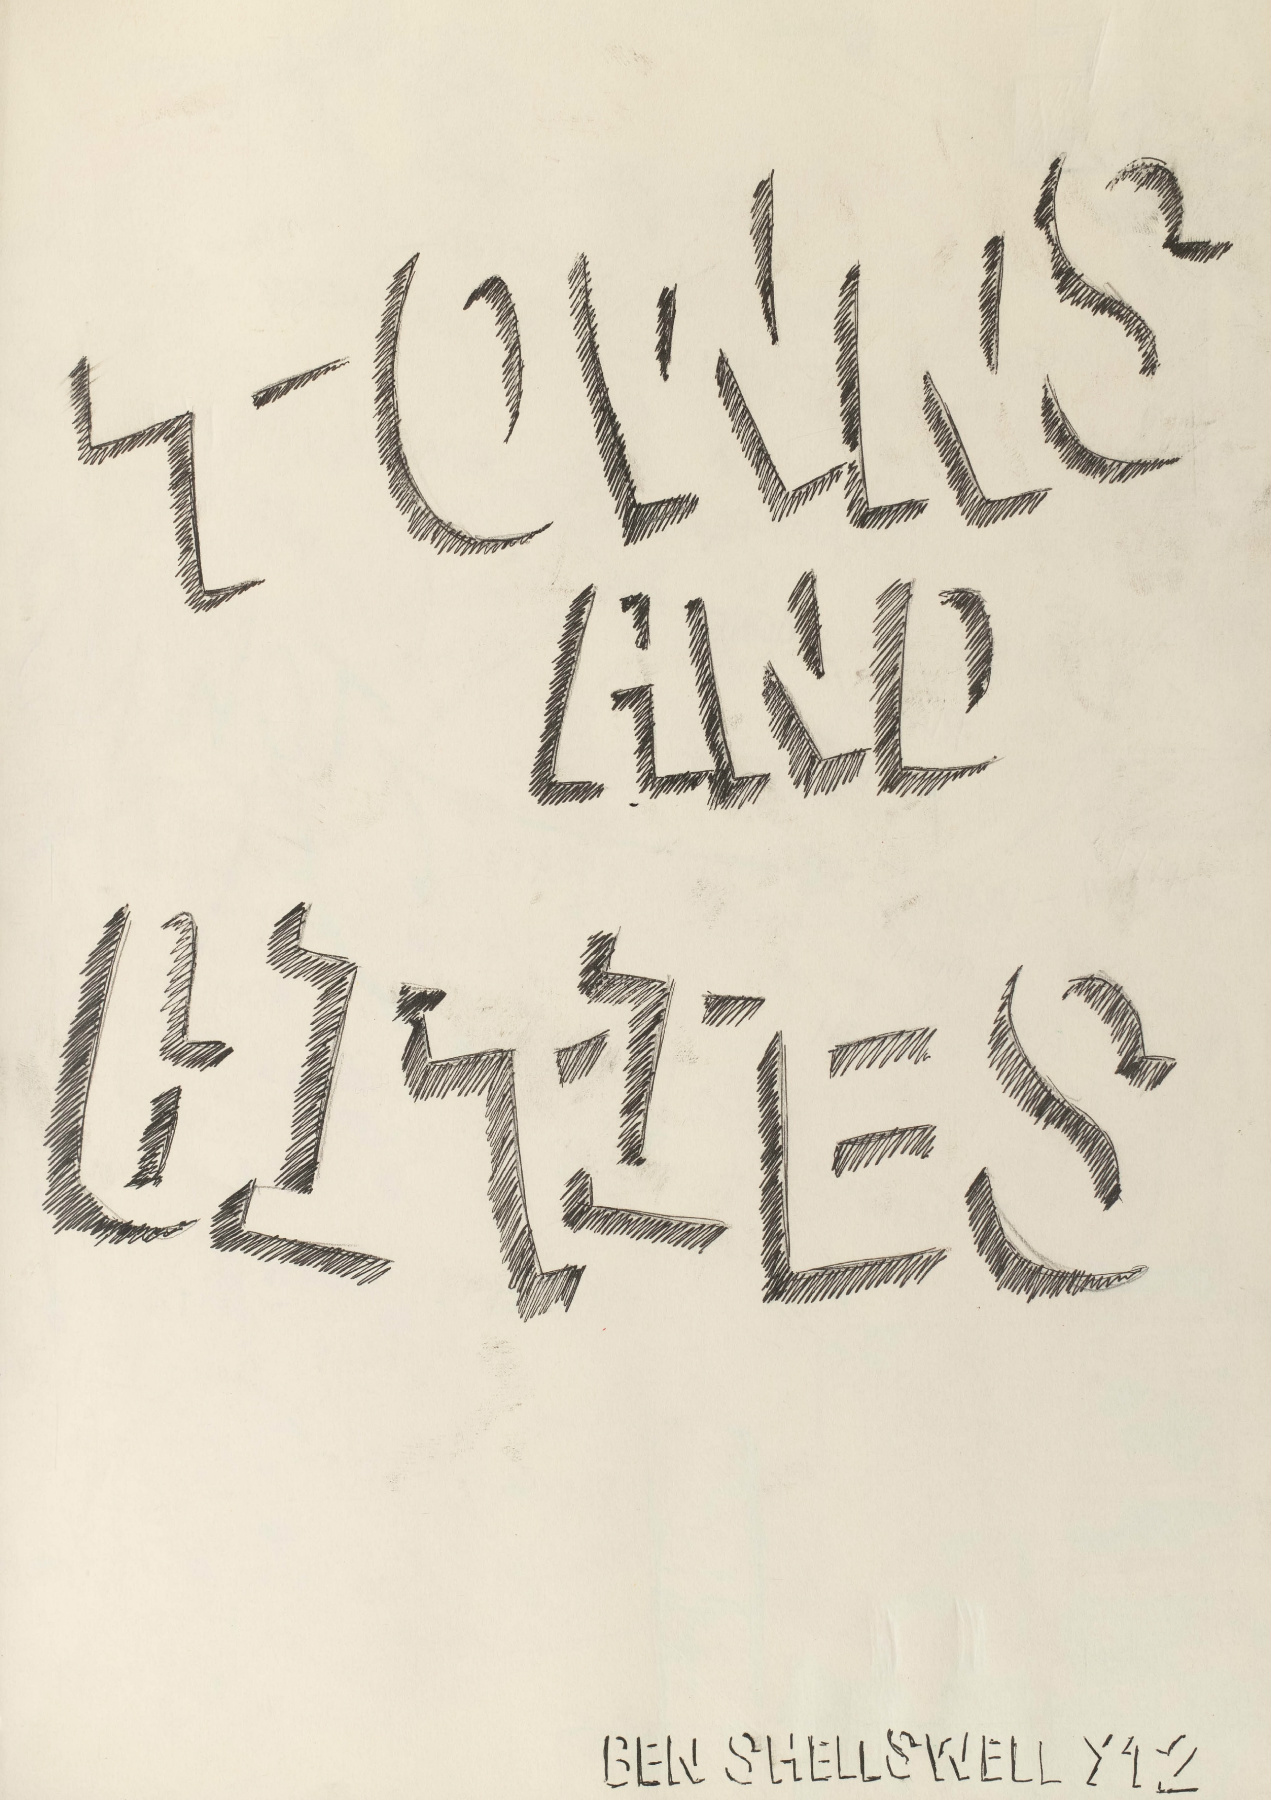 TOWNS
AND
CITIES
BEN SHELLSWELL Y12